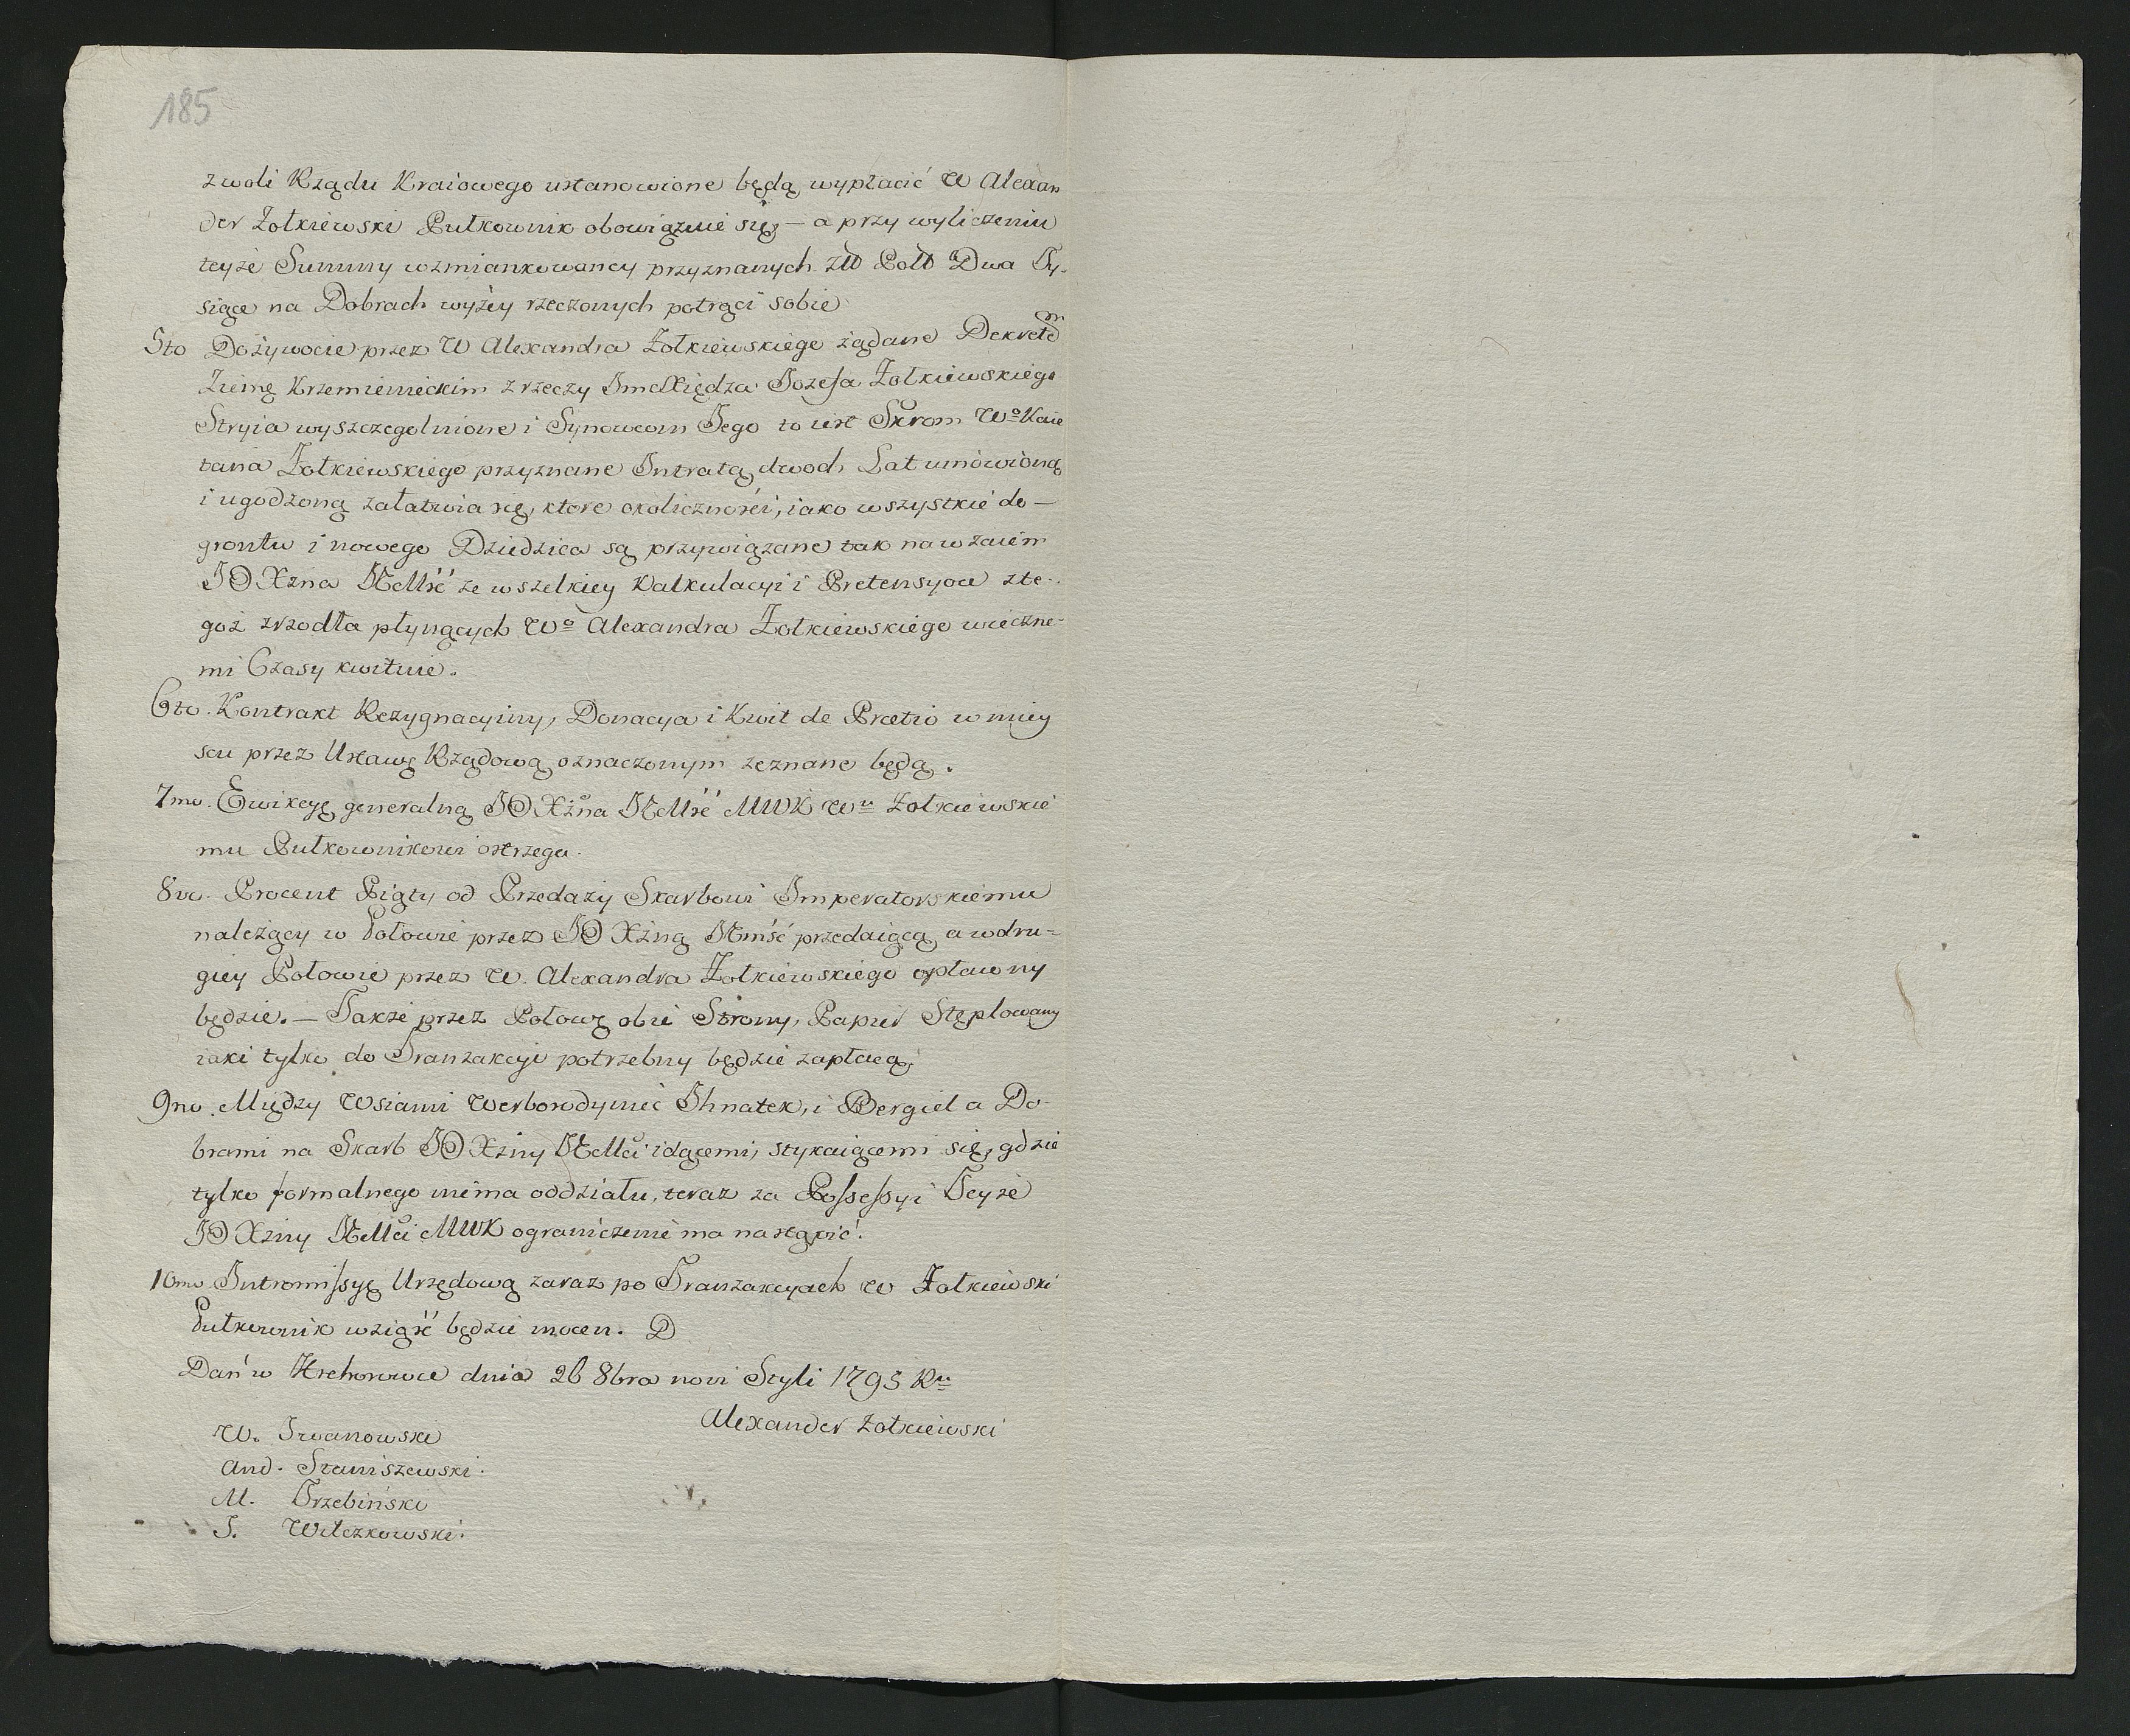 185
z woli Rządu Kraiowego ustanowione będą wypłacić W Alexan
der Żołkiewski Pułkownik obowiązuie się — a przy wyliczeniu
teyże Summy wzmiankowaney przyznanych Złł Poll Dwa Ty-
siące na Dobrach wyżey rzeczonych potrąci sobie
5to Dożywocie przez W Alexandra Żołkiewskiego żądane Dekretem
Ziems Krzemienieckim z rzeczy Jmć Xiędza Jozefa Żołkiewskiego
Stryia wyszczegolnione i Synowcom Jego to iest Skrom Wo Kaie
tana Żołkiewskiego przyznane Intratą dwoch Lat umówioną
i ugodzoną załatwia się, ktore okoliczności, iako wszystkie do —
grontu i nowego Dziedzica są przywiązane tak nawzaiem
JO Xżna JeMść ze wszelkiey Kalkulacyi i Pretensyow z te-
goż zrzodła płynących Wo Alexandra Żołkiewskiego wieczne-
mi Czasy kwituie.
6to. Kontrakt Rezygnacyiny, Donacya i Kwit de Praetio w miey
scu przez Ustawę Rządową oznaczonym zeznane będą.
7mo. Ewikcyę generalną JO Xżna JeMść MWK Wu Żołkiewskie
mu Pułkownikowi ostrzega.
8vo. Procent Piąty od Przedaży Skarbowi Imperatorskiemu
należący w Połowie przez JO Xżnę Jmść przedaiącą, a w dru-
giey Połowie przez W. Alexandra Żołkiewskiego opłacony
będzie. — Także przez Połowę obie Strony, Papier Stęplowany
iaki tylko do Tranzakcyi potrzebny będzie zapłacą.
9no. Między Wsiami Werborodyńce Ihnatek, i Bergiel a Do-
brami na Skarb JO Xżny JeMci idącemi, stykaiącemi się, gdzie
tylko formalnego niema oddziału, teraz za Possessyi Teyże
JO Xżny JeMci MWK ograniczenie ma nastąpić.
10mo Intromissyę Urzędową zaraz po Tranzakcyach W Żołkiewski
Pułkownik wziąść będzie mocen. D
Dan w Hrehorowce dnia 26 8bra novi Styli 1795 Ru
Alexander Żołkiewski
W. Iwanowski
And. Staniszewski.
M. Trzebiński
J. Wilczkowski.